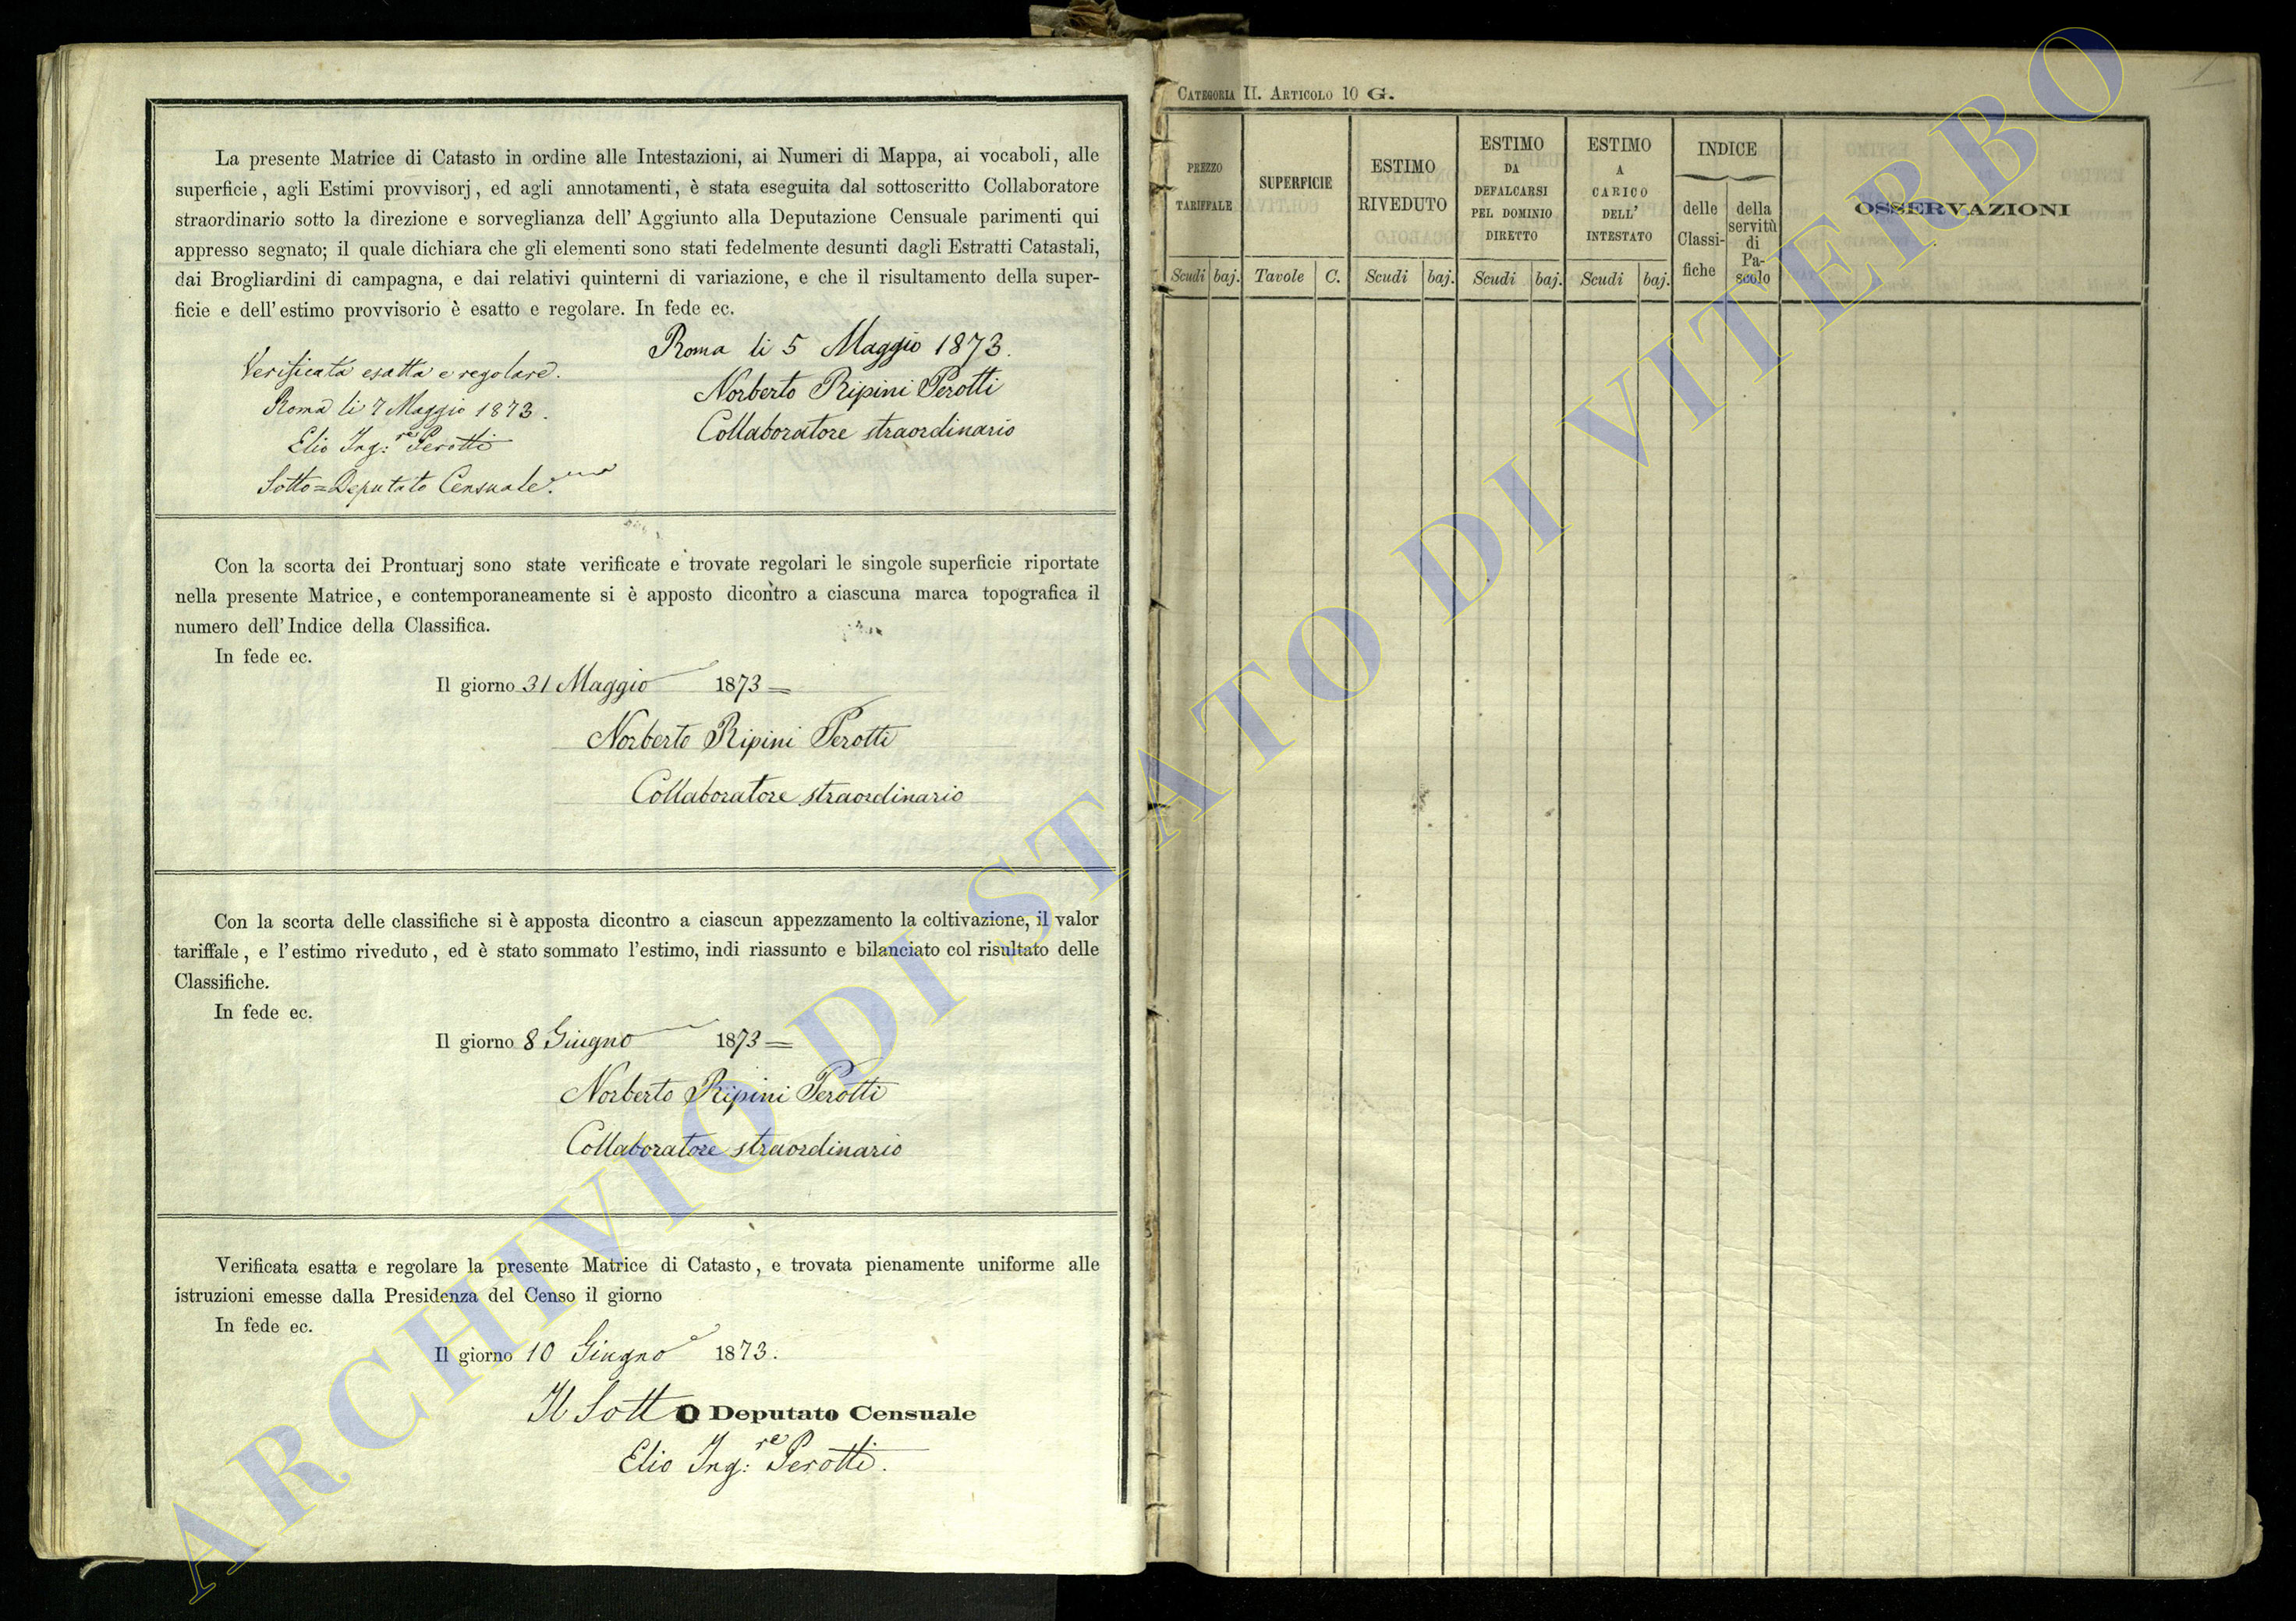 La presente Matrice di Catasto in ordine alle Intestazioni, ai Numeri di Mappa, ai vocaboli, alle
superficie, agli Estimi provvisorj, ed agli annotamenti, è stata eseguita dal sottoscritto Collaboratore
straordinario sotto la direzione e sorveglianza dell' Aggiunto alla Deputazione Censuale parimenti qui
appresso segnato; il quale dichiara che gli elementi sono stati fedelmente desunti dagli Estratti Catastali,
dai Brogliardini di campagna, e dai relativi quinterni di variazione, e che il risultamento della super-
ficie e dell' estimo provvisorio è esatto e regolare. In fede ec.
Roma li 5 Maggio 1873.
Norberto Ripini Perotti
Collaboratore straordinario
Verificata esatta e regolare.
Roma li 7 Maggio 1873.
Elio Ing:re Perotti
Sotto=Deputato Censuale.
Con la scorta dei Prontuarj sono state verificate e trovate regolari le singole superficie riportate
nella presente Matrice, e contemporaneamente si è apposto dicontro a ciascuna marca topografica il
numero dell' Indice della Classifica.
In fede ec.
Il giorno 31 Maggio 1873=
Norberto Ripini Perotti
Collaboratore straordinario
Con la scorta delle classifiche si è apposta dicontro a ciascun appezzamento la coltivazione, il valor
tariffale, e l'estimo riveduto, ed è stato sommato l'estimo, indi riassunto e bilanciato col risultato delle
Classifiche.
In fede ec.
Il giorno 8 Giugno 1873=
Norberto Ripini Perotti
Collaboratore straordinario
Verificata esatta e regolare la presente Matrice di Catasto, e trovata pienamente uniforme alle
istruzioni emesse dalla Presidenza del Censo il giorno
In fede ec.
Il giorno 10 Giugno 1873.
Il Sotto Deputato Censuale
Elio Ing:re Perotti.
Categoria II. Articolo 10 G.
PREZZO
TARIFFALE
Scudi baj.
SUPERFICIE
Tavole C.
ESTIMO
RIVEDUTO
Scudi baj.
ESTIMO
DA
DEFALCARSI
PEL DOMINIO
DIRETTO
Scudi baj.
ESTIMO
A
CARICO
DELL'
INTESTATO
Scudi baj.
INDICE
delle
Classi-
fiche
della
servitù
di
Pa-
scolo
OSSERVAZIONI
ARCHIVIO DI STATO DI VITERBO